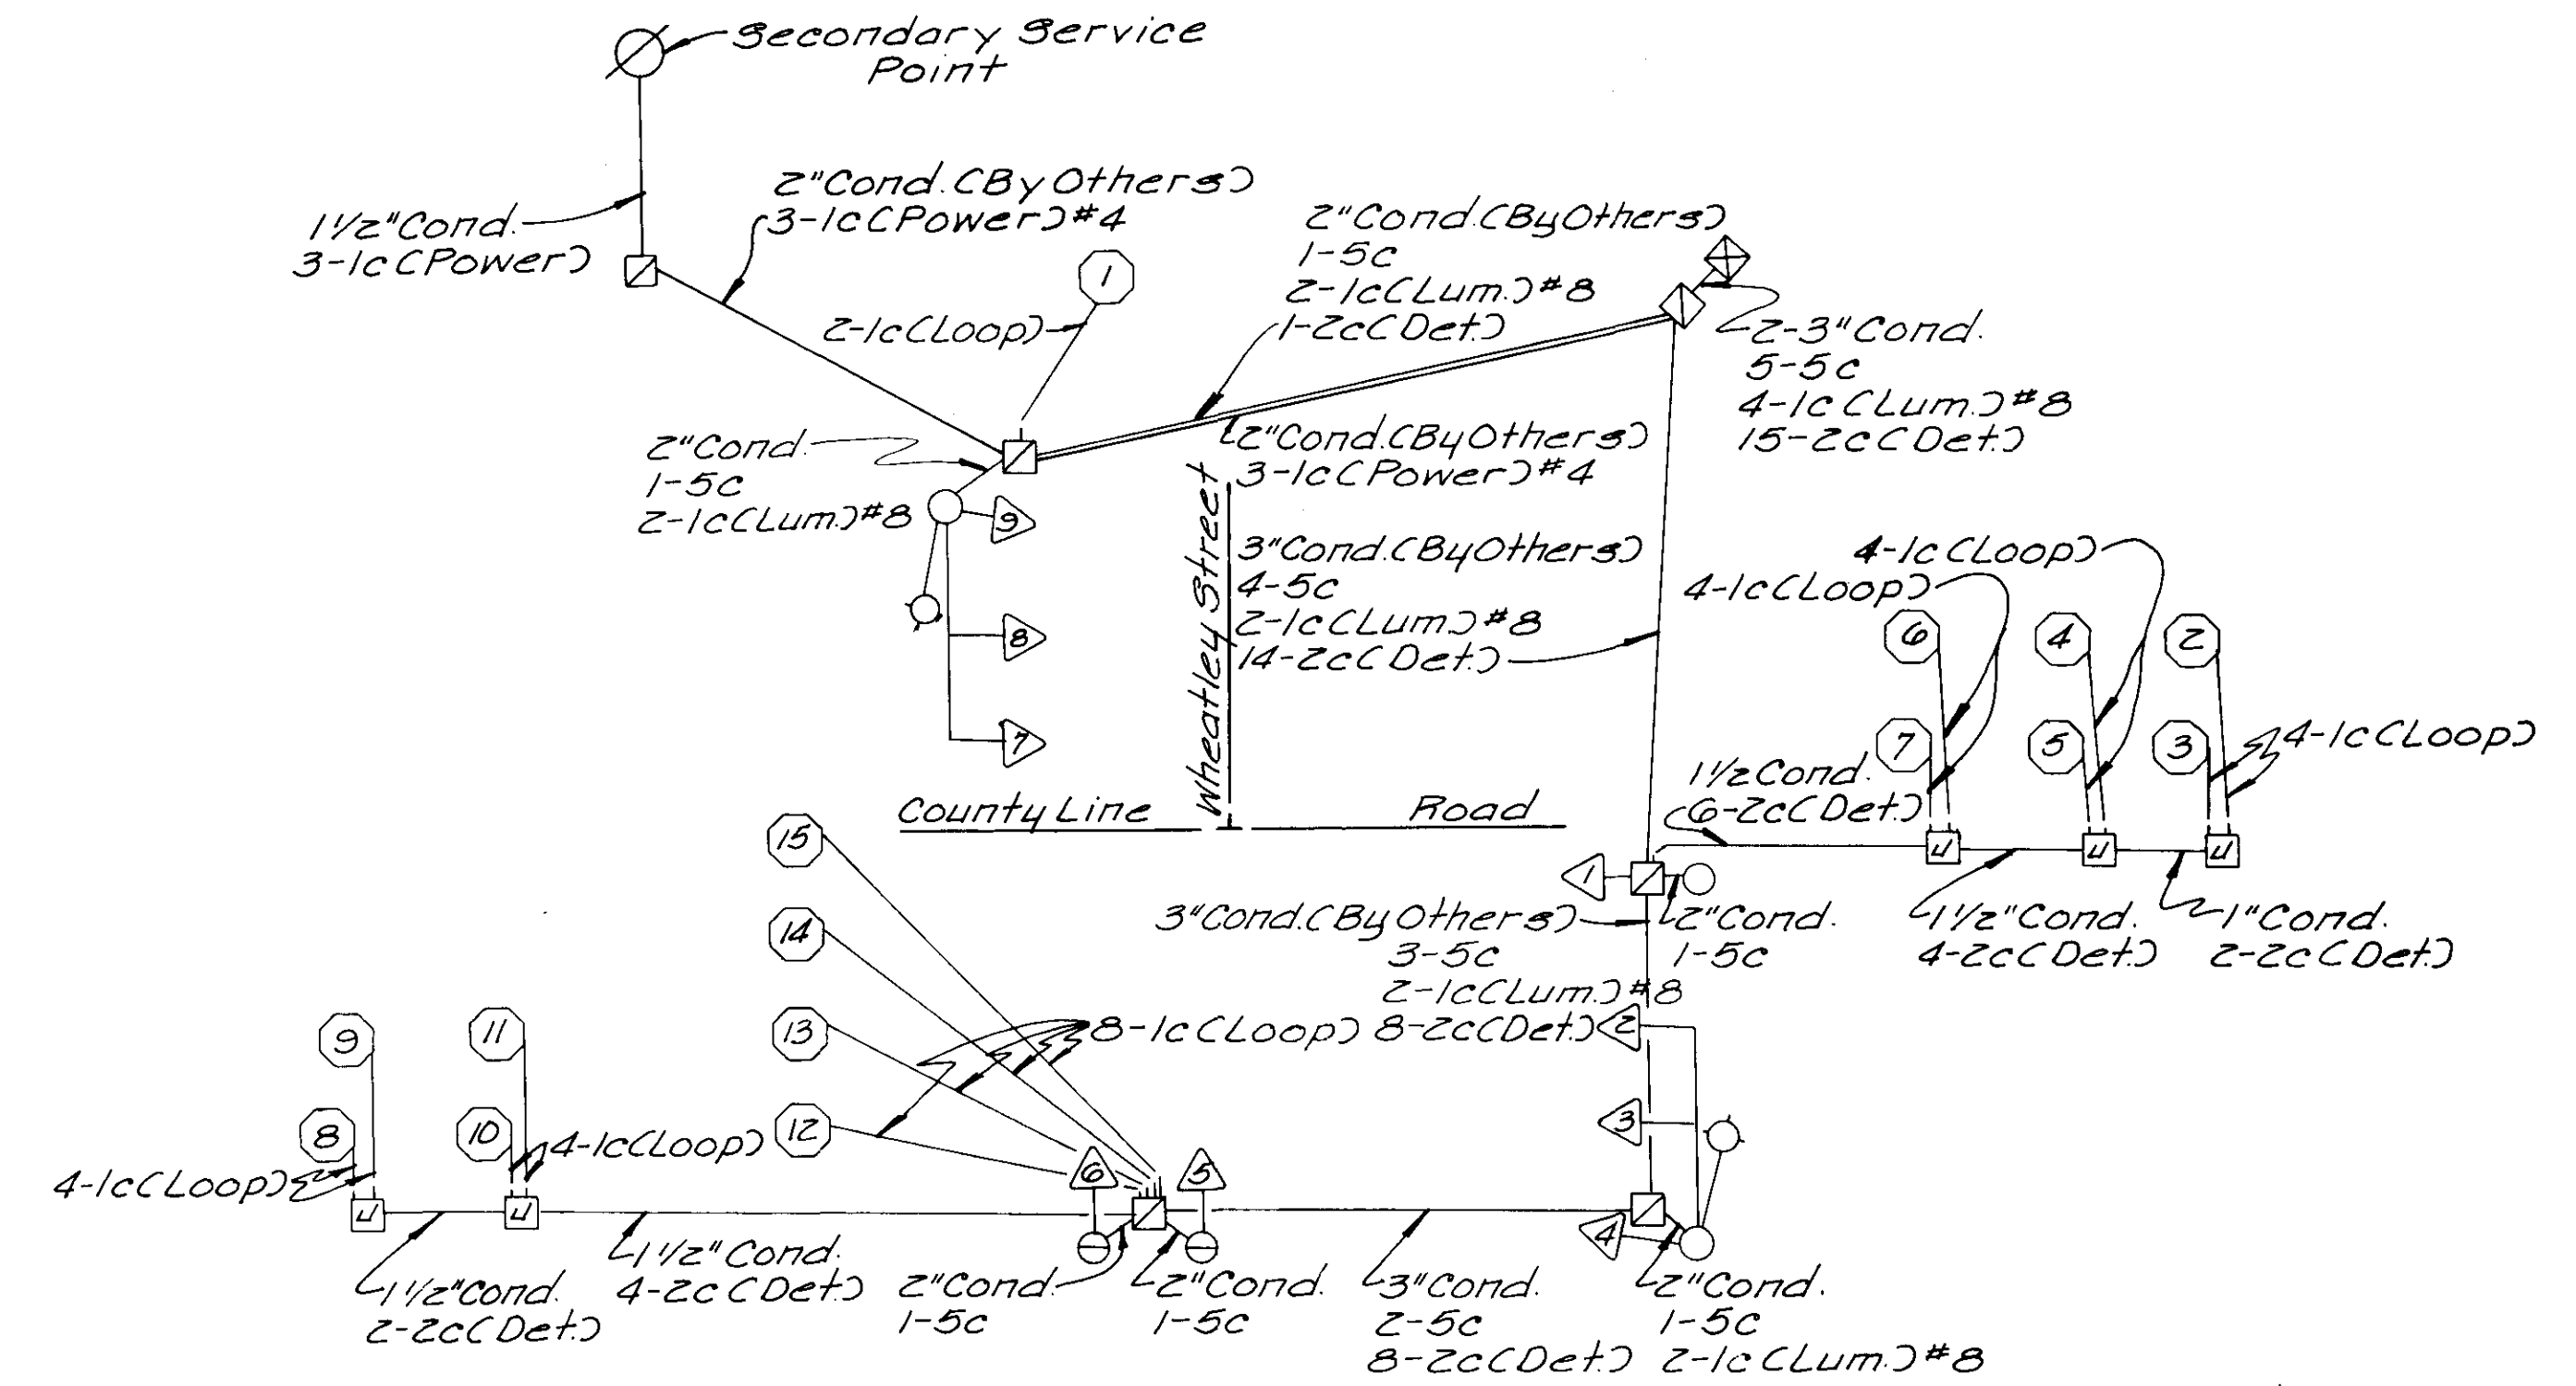 Secondary Service
Point
2"Cond.(By Others)
3-1c(Power)#4
1½"Cond.
3-1c(Power)
2"Cond.(By Others)
1-5c
2-1c(Lum.)#8
1-2c(Det.)
1
2-1c(Loop)
2-3"Cond.
5-5c
4-1c(Lum.)#8
15-2c(Det.)
2"Cond.
1-5c
2-1c(Lum.)#8
2"Cond.(By Others)
3-1c(Power)#4
9
8
7
Wheatley Street
3"Cond.(By Others)
4-5c
2-1c(Lum.)#8
14-2c(Det.)
4-1c(Loop)
4-1c(Loop)
6
4
2
7
5
3
4-1c(Loop)
1½Cond.
6-2c(Det.)
County Line Road
15
1
3"Cond.(By Others)
3-5c
2-1c(Lum.)#8
8-2c(Det.)
2"Cond.
1-5c
1½"Cond.
4-2c(Det.)
1"Cond.
2-2c(Det.)
14
13
12
8-1c(Loop)
2
3
9
11
8
10
4-1c(Loop)
4-1c(Loop)
6
5
4
1½"Cond.
2-2c(Det.)
1½"Cond.
4-2c(Det.)
2"Cond.
1-5c
2"Cond.
1-5c
3"Cond.
2-5c
8-2c(Det.)
2"Cond.
1-5c
2-1c(Lum.)#8